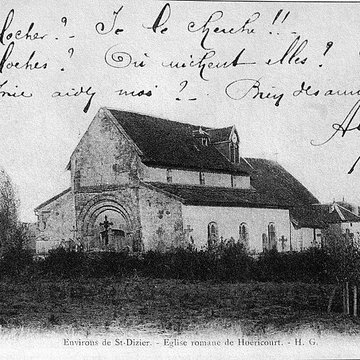 clocher ? - Je le cherche !! -
cloches ? Où nichent elles ?
aidez moi ? - Bien des
Environs de St-Dizier. - Eglise romane de Hoëricourt. - H. G.